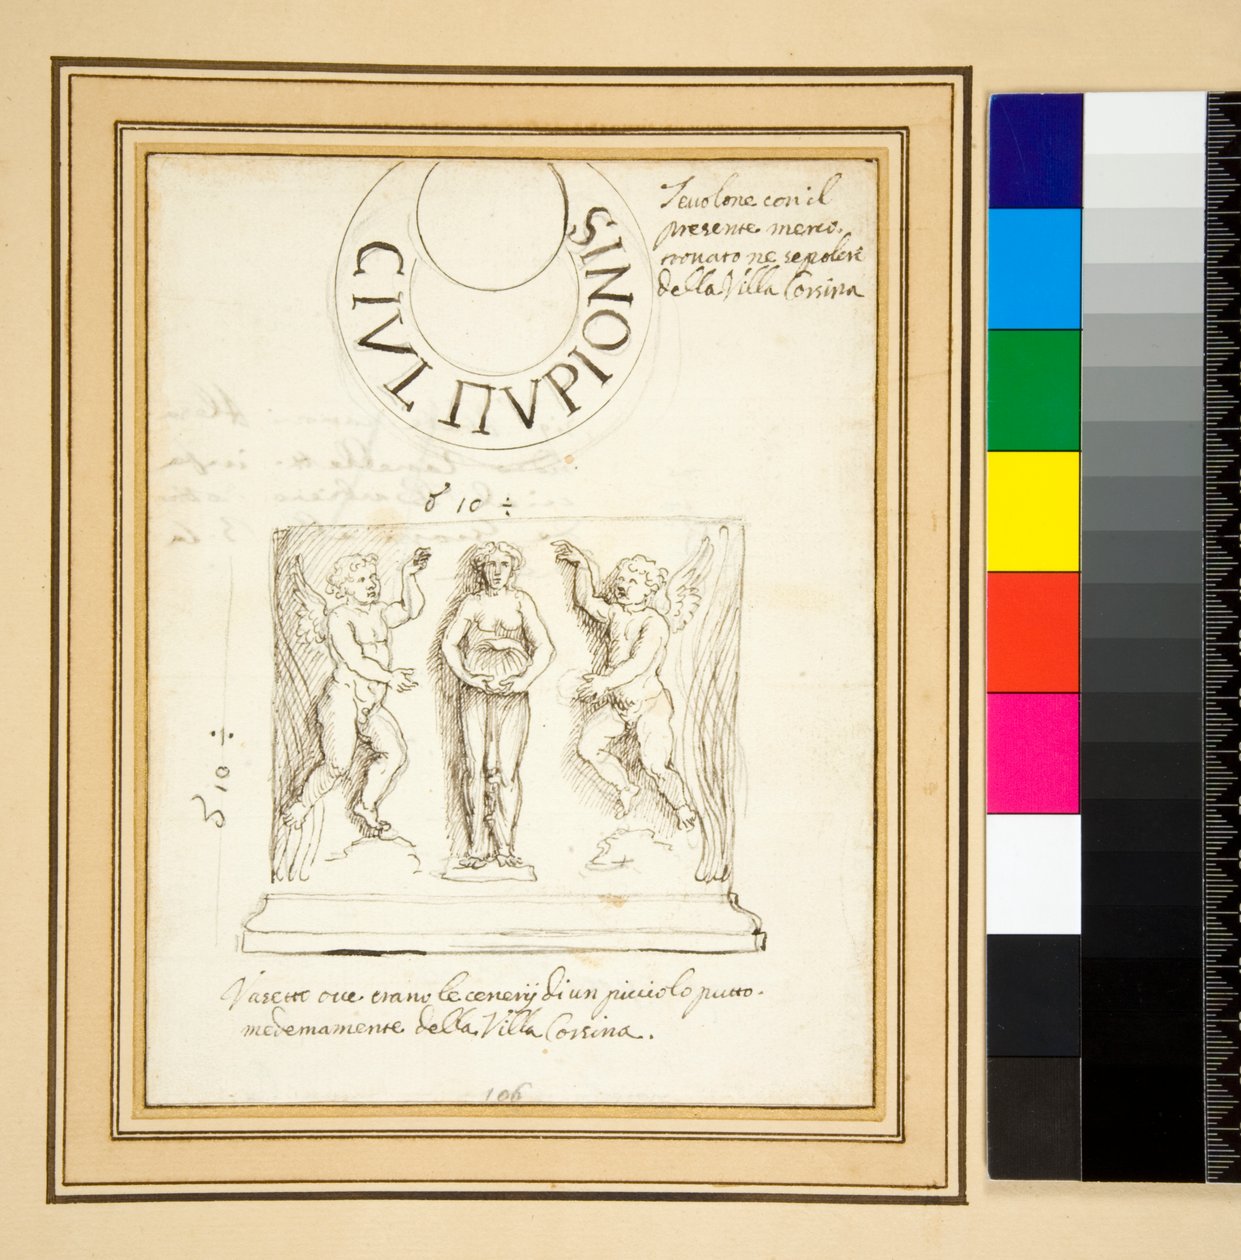 Tevolone con il
presente merco.
trovato ne sepolcri
della Villa Corsina
C IVL ΠVPIONIS
δ 10 ÷
10 ÷
Vasetto ove erano le cenerij di un picciolo putto.
medemamente della Villa Corsina.
106